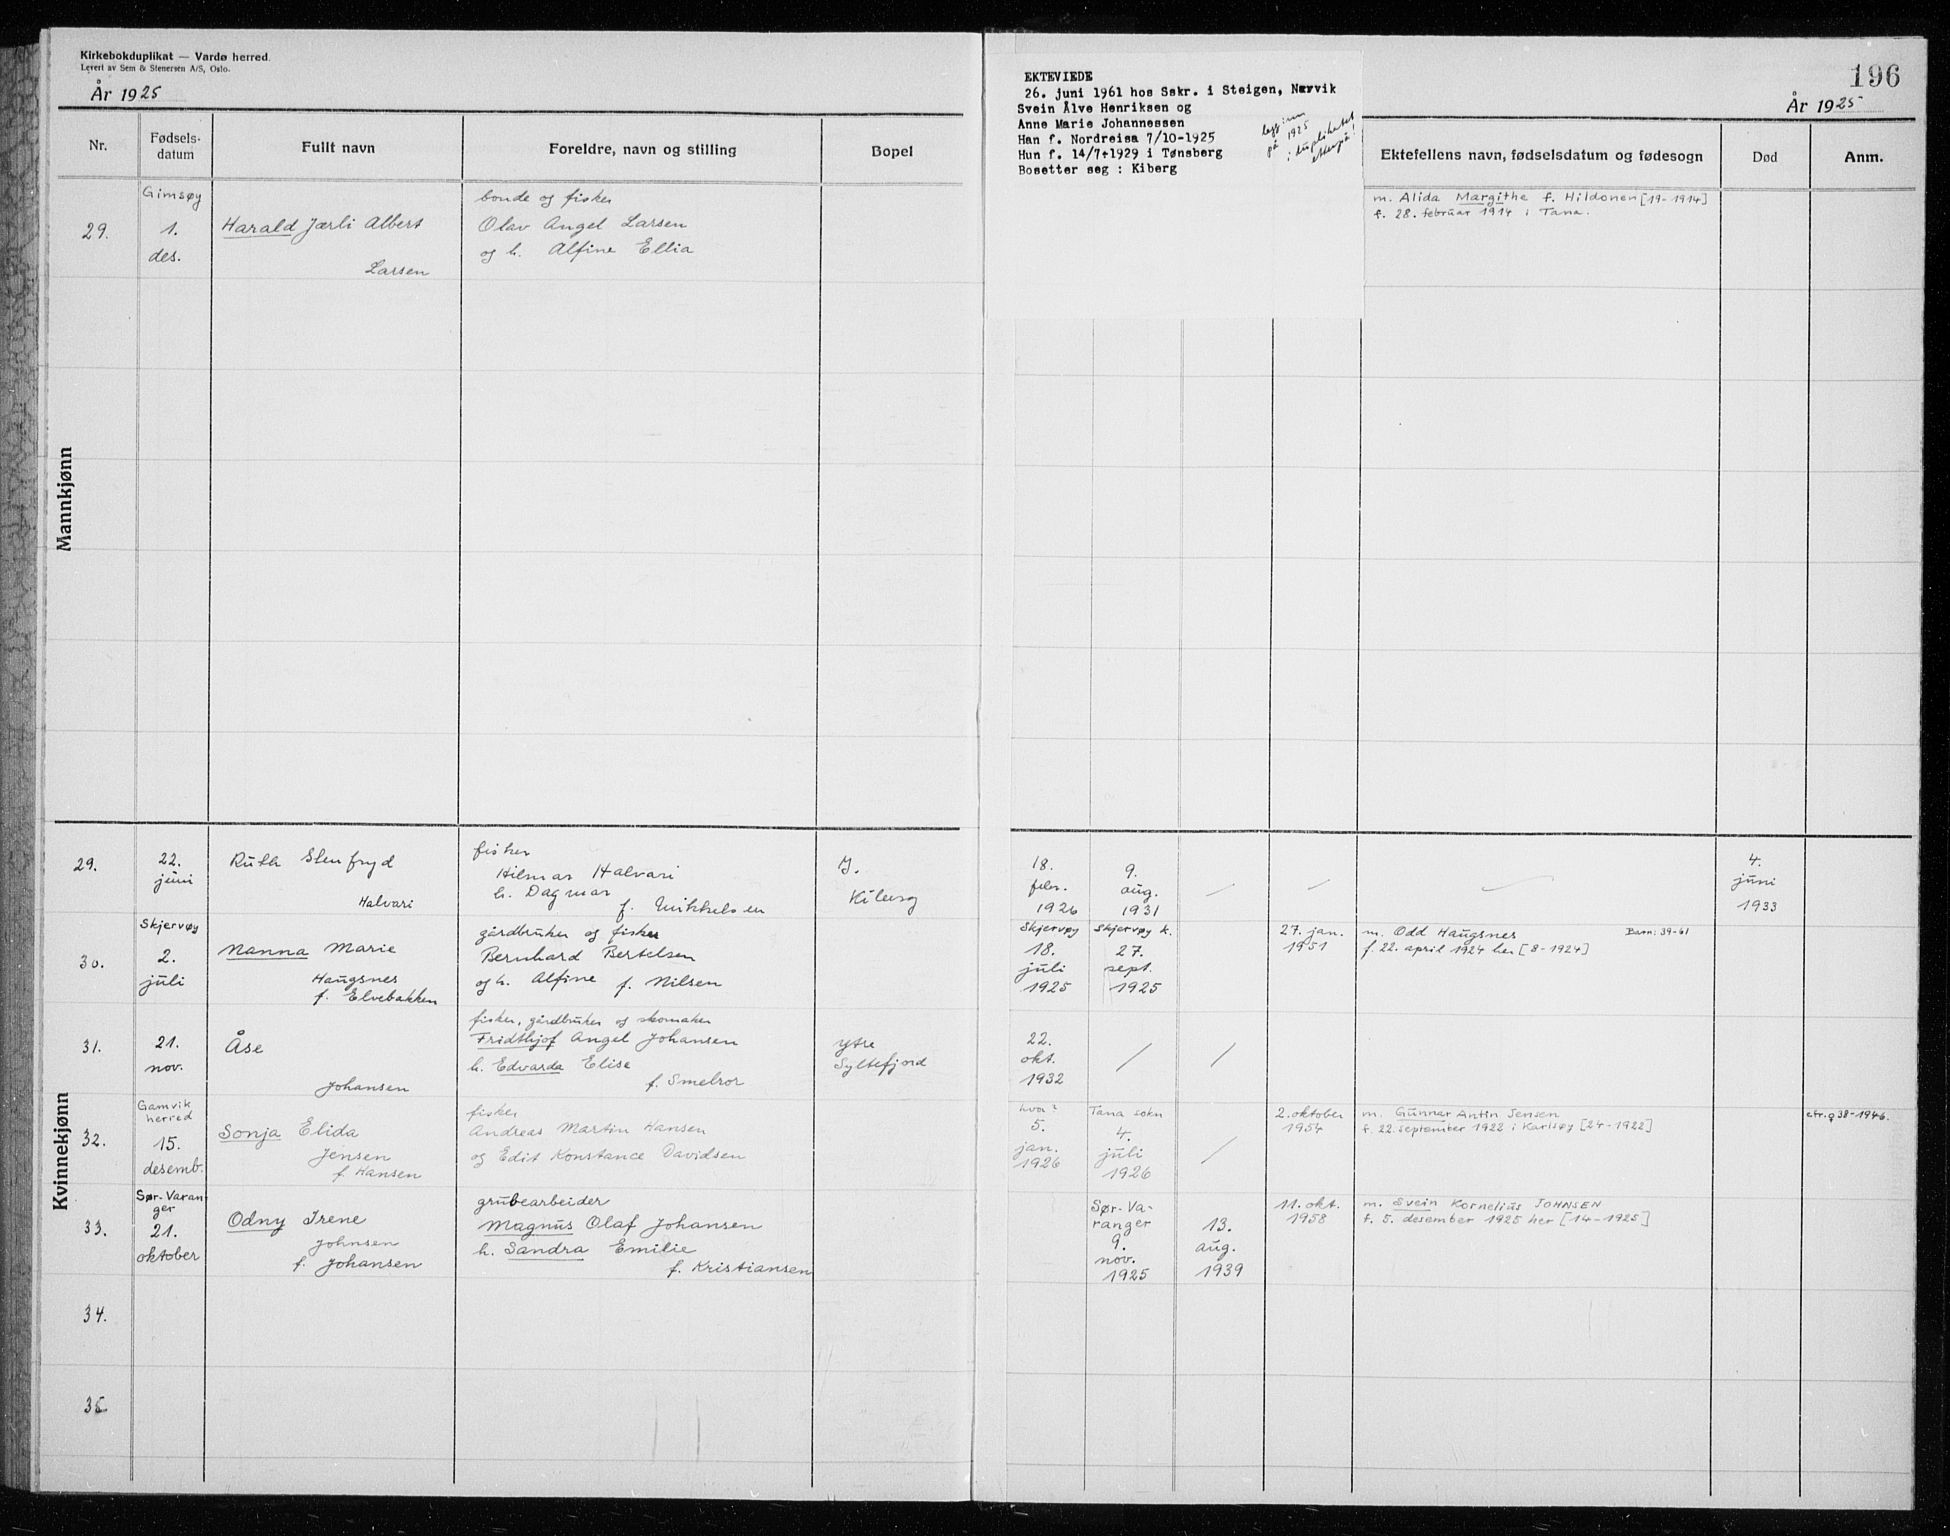 Kirkebokduplikat — Vardø herred.
Levert av Sem & Stenersen A/S, Oslo.
År 1925
Nr.
Fødsels-
datum
Fullt navn
Foreldre, navn og stilling
Bopel
Mannkjønn
29.
Gimsøy
1.
des.
Harald Jærli Albert
Larsen
bonde og fisker
Olav Angel Larsen
og h. Alfine Ellia
Kvinnekjønn
29.
22.
juni
Ruth Stenfryd
Halvari
fisker
Hilmar Halvari
h. Dagmar
f. Mikkelsen
Y.
Kiberg
30.
Skjervøy
2.
juli
Nanna Marie
Haugsnes
f. Elvebakken
gårdbruker og fisker
Bernhard Bertelsen
og h. Alfine f. Nilsen
31.
21.
nov.
Åse
Johansen
fisker, gårdbruker og skomaker
Fridthjof Angel Johansen
h. Edvarda Elise
f. Smelror
ytre
Syltefjord
32.
Gamvik
herred
15.
desemb.
Sonja Elida
Jensen
f. Hansen
fisker
Andreas Martin Hansen
og Edit Konstance Davidsen
33.
Sør-Varan
ger
21.
oktober
Odny Irene
Johnsen
f. Johansen
grubearbeider
Magnus Olaf Johansen
h. Sandra Emilie
f. Kristiansen
34.
35.
196
År 1925
EKTEVIEDE
26. juni 1961 hos Sskr. i Steigen, Narvik
Svein Ålve Henriksen og
Anne Marie Johannessen
Han f. Nordreisa 7/10-1925
Hun f. 14/7-1929 i Tønsberg
Bosetter seg : Kiberg
legg inn
på 1925
i duplikatet
Ektefellens navn, fødselsdatum og fødesogn
Død
Anm.
m. Alida Margithe f. Hildonen [19-1914]
f. 28. februar 1914 i Tana.
18.
febr.
1926
9.
aug.
1931
4.
juni
1933
Skjervøy
18.
juli
1925
Skjervøy k.
27.
sept.
1925
27. jan.
1951
m. Odd Haugsnes
Barn: 39-61
f. 22. april 1924 her [8-1924]
22.
okt.
1932
hvor?
5.
jan.
1926
Tana sokn
4.
juli
1926
2. oktober
1954
m. Gunnar Antin Jensen
f. 22. september 1922 i Karlsøy [24-1922]
cfr. g 38-1946.
Sør-Va-
ranger
9.
nov.
1925
13.
aug.
1939
11. okt.
1958
m. Svein Kornelius JOHNSEN
f. 5. desember 1925 her [14-1925]